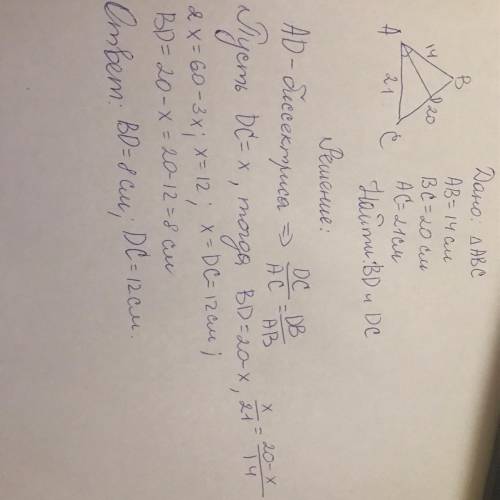 Дано: △ABC
AB=14см
BC=20см
AC=21см
Найти: BD и DC
A
14
B
20
21
C
Решение:
AD-биссектриса => DC/AC = DB/AB
Пусть DC=x, тогда BD=20-x, x/21 = 20-x/14
2x=60-3x; x=12; x=DC=12см;
BD=20-x=20-12=8см
Ответ: BD=8см; DC=12см.